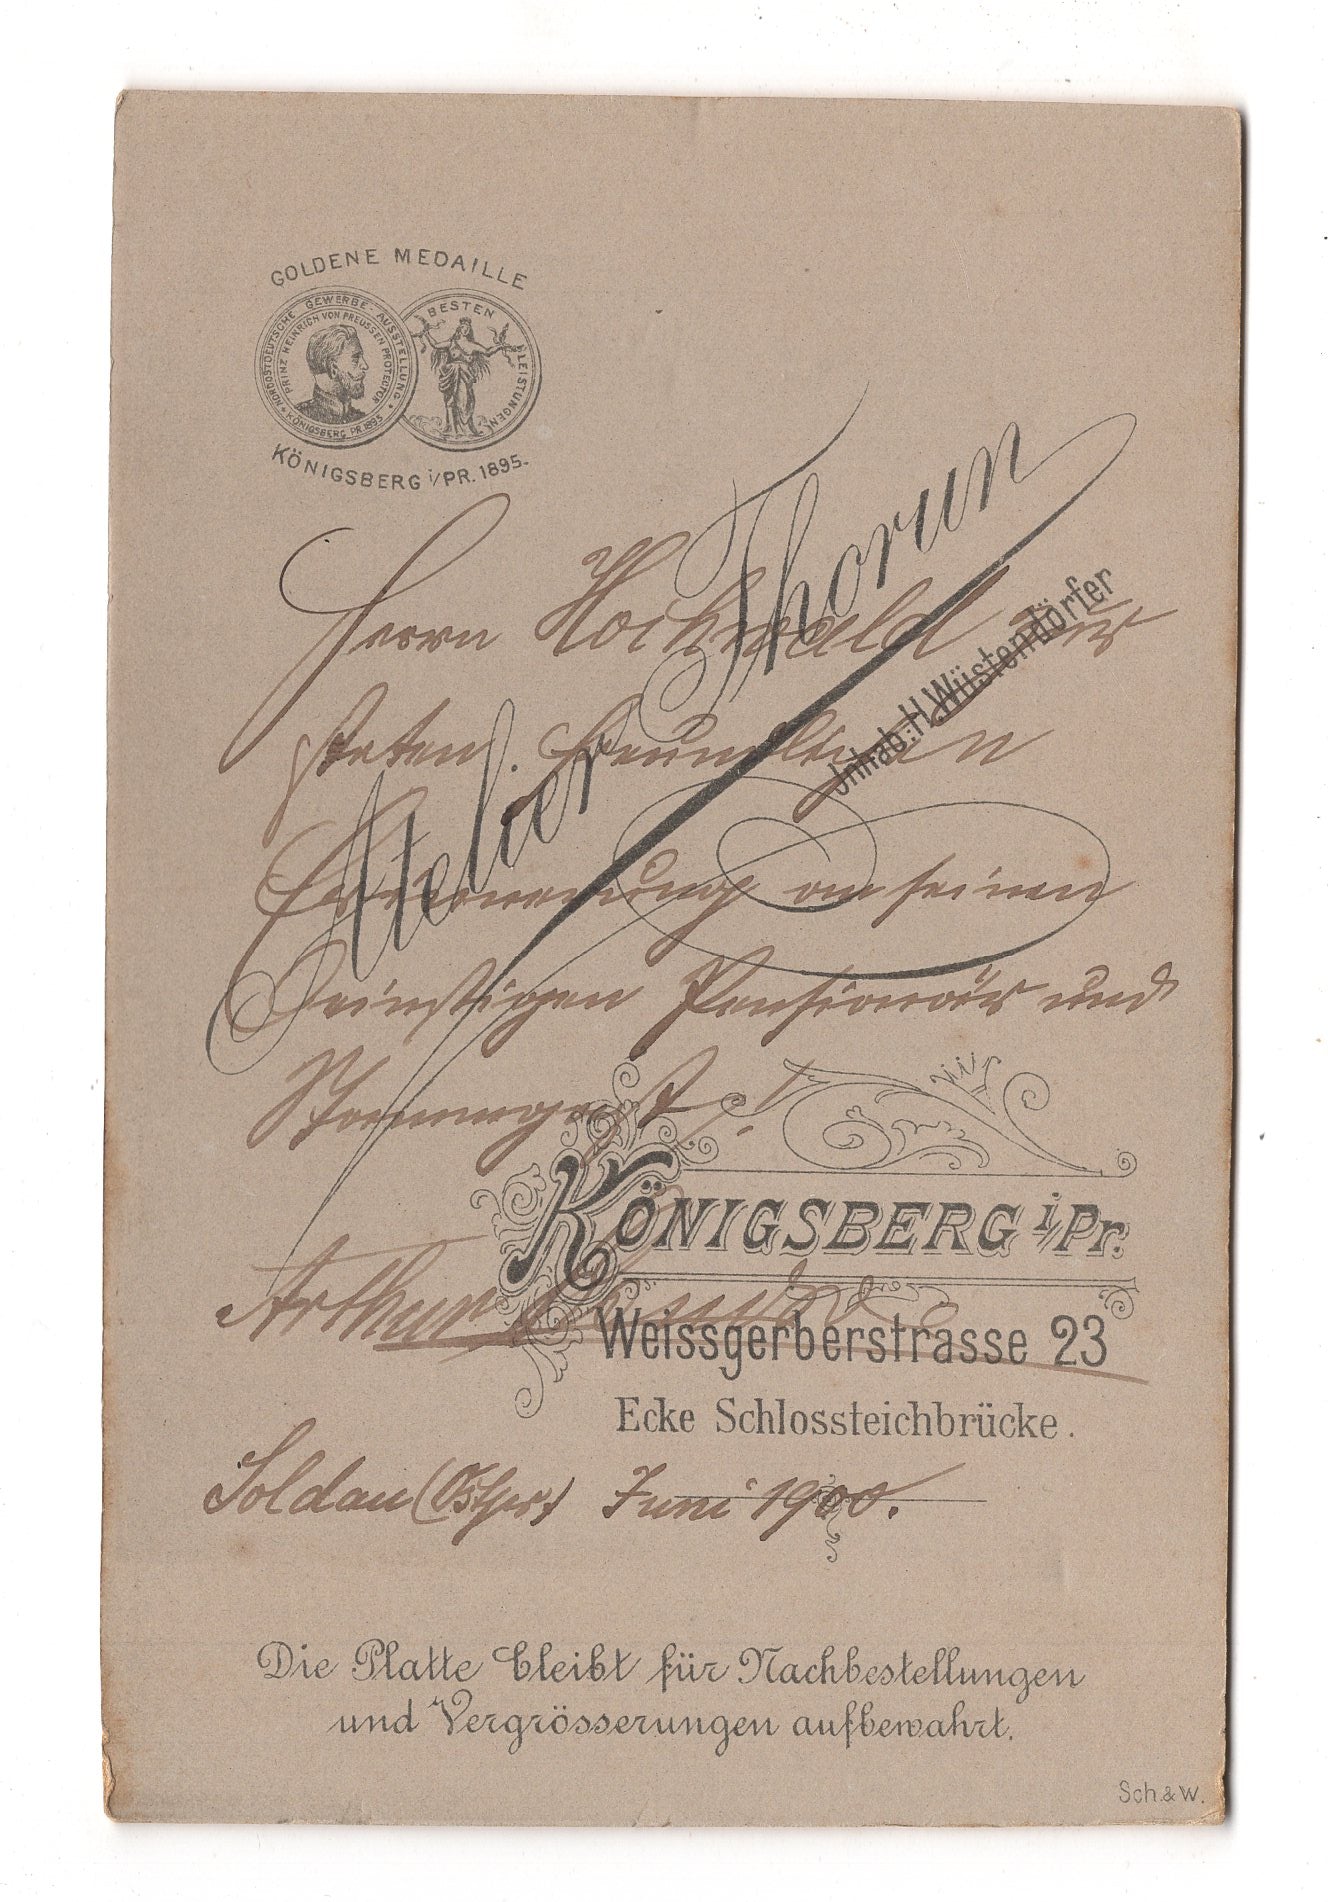 GOLDENE MEDAILLE
NORDOSTDEUTSCHE GEWERBE-AUSSTELLUNG
KÖNIGSBERG PR. 1895
PRINZ HEINRICH VON PREUSSEN PROTECTOR
BESTEN LEISTUNGEN
KÖNIGSBERG i/PR. 1895.
Atelier Thorun
Inhab: H. Wüstendörfer
Herrn Hochwald zur
steten freundlichen
Erinnerung an seinen
einstigen Pensionär und
Stammgast!
KÖNIGSBERG i/Pr.
Arthur
Weissgerberstrasse 23
Ecke Schlossteichbrücke.
Soldau (Ostpr.) Juni 1900.
Die Platte bleibt für Nachbestellungen
und Vergrösserungen aufbewahrt.
Sch. & W.